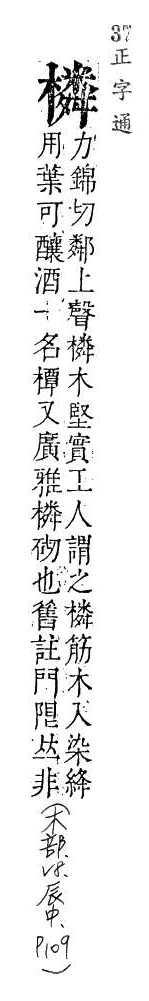 37正字通
橉
力錦切鄰上聲橉木堅實工人謂之橉筋木入染絳
用葉可釀酒一名橝又廣雅橉砌也舊註門限𠀤非
(木部、15.辰中、P109)